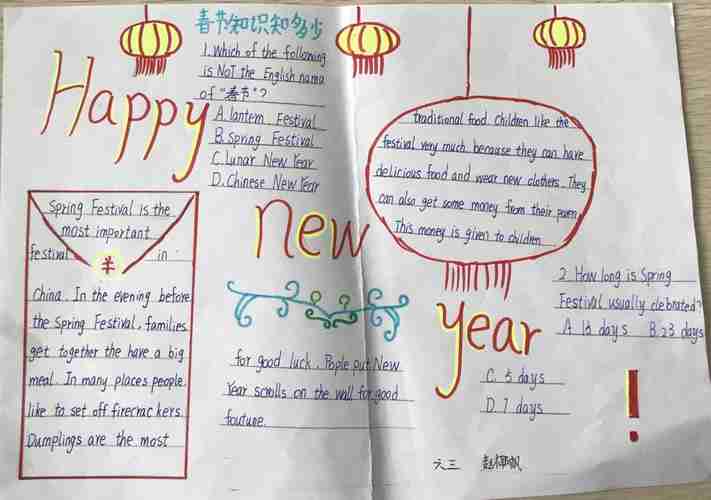 春节知识知多少
1. Which of the following
is NOT the English name
of "春节"?
A. lantern Festival
B. Spring Festival
C. Lunar New Year
D. Chinese New Year
Happy
new
year
!
Spring Festival is the
most important
festival in
¥
china. In the evening before
the Spring Festival, families
get together the have a big
meal. In many places people
like to set off firecrac kers.
Dumplings are the most
traditional food. Children like the
festival very much because they can have
delicious food and wear new clothers. They
can also get some money from their paren
This money is given to children
for good luck. Pople put New
Year scrolls on the wall for good
foutune.
2. How long is Spring
Festival usually clebrated?
A. 13 days B. 23 days
C. 5 days
D. 7 days
六三